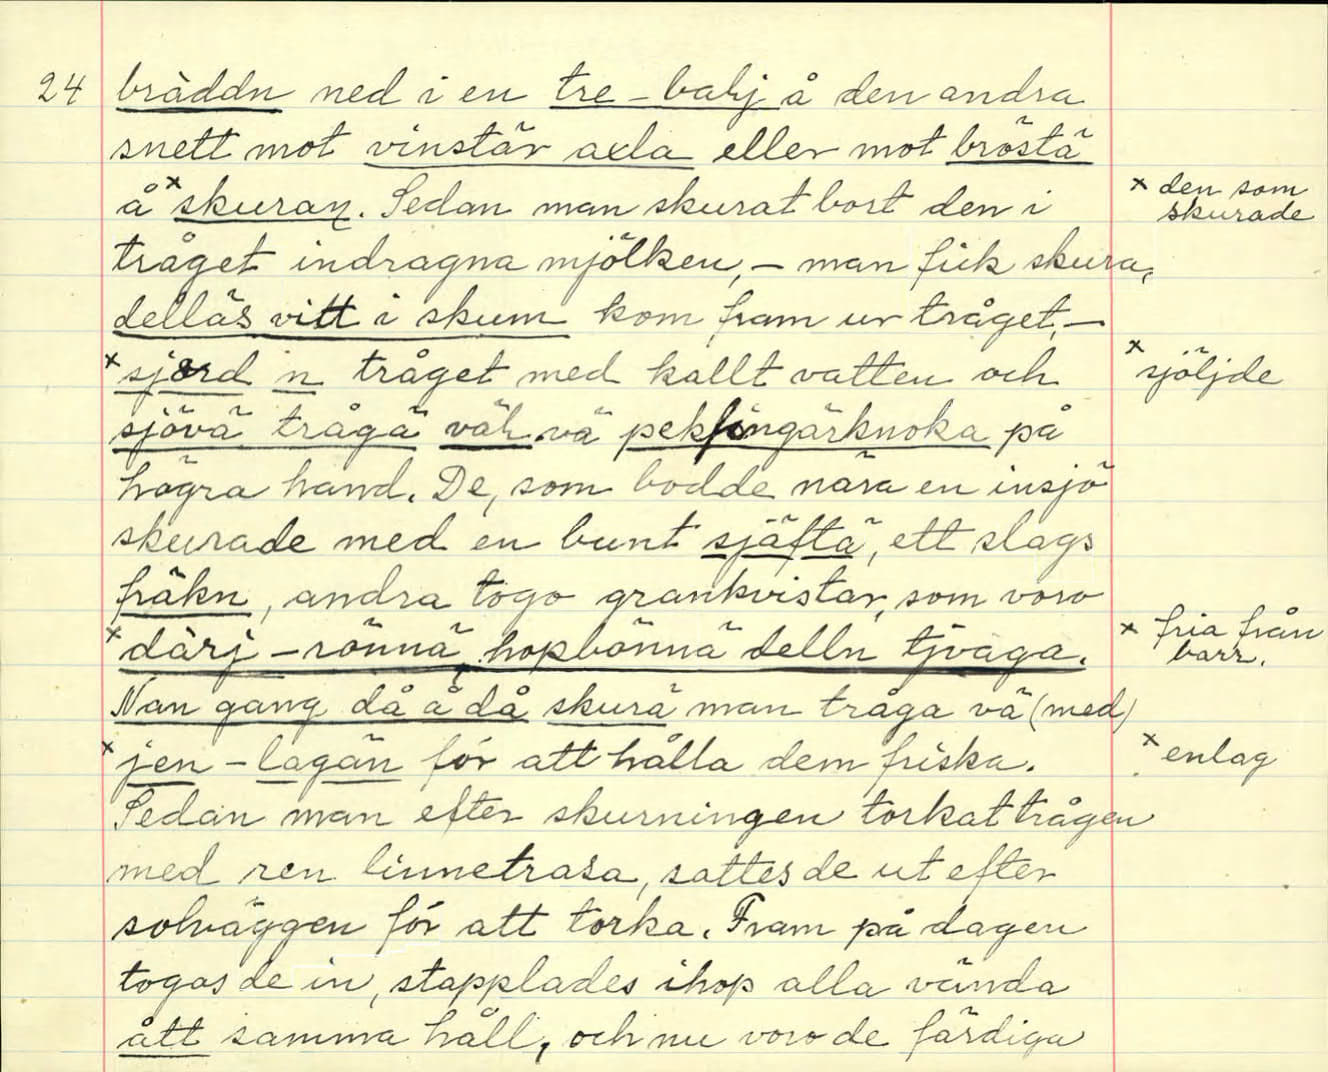 24 bräddn ned i en tre-balj å den andra
snett mot vinstär axla eller mot bröstä
å ˣskuran. Sedan man skurat bort den i
ˣ den som
skurade
tråget indragna mjölken, – man fick skura,
delläs vitt i skum kom fram ur tråget, –
ˣsjörd n tråget med kallt vatten och
ˣ sjöljde
sjövä trågä väk vä pekfingärknoka på
högra hand. De, som bodde nära en insjö
skurade med en bunt sjäftä, ett slags
fräkn, andra togo grankvistar, som voro
ˣdärj-rönnä hopbönnä delln tjvaga.
ˣ fria från
barr.
Nan gang då å då skurä man tråga vä (med)
ˣjen-lagän för att hålla dem friska.
ˣ enlag
Sedan man efter skurningen torkat trågen
med ren linnetrasa, sattes de ut efter
solväggen för att torka. Fram på dagen
togas de in, stapplades ihop alla vända
ått samma håll, och nu voro de färdiga